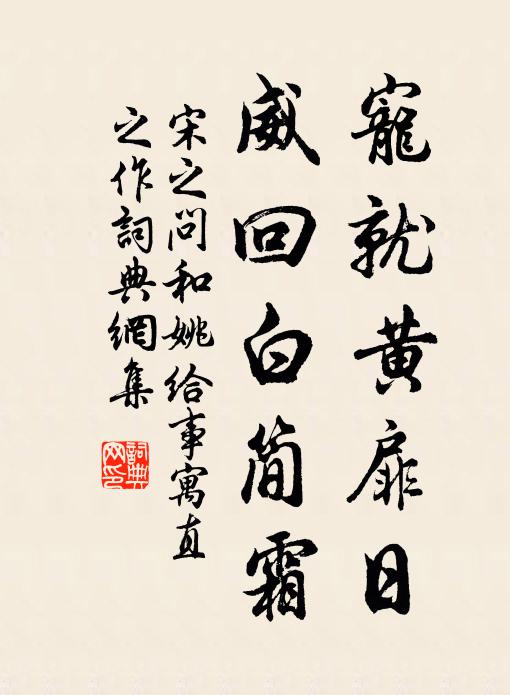 寵就黃扉日
威回白簡霜
宋之問和姚給事寓直
之作詞典網集
詞典
网印